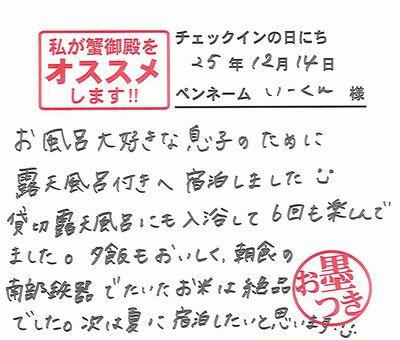 私が蟹御殿を
オススメ
します!!
チェックインの日にち
25年12月14日
ペンネーム いーくん 様
お風呂大好きな息子のために
露天風呂付きへ宿泊しました
貸切露天風呂にも入浴して6回も楽しんで
ました。夕飯もおいしく、朝食の
南部鉄器でたいたお米は絶品
でした。次は夏に宿泊したいと思います
お墨つき